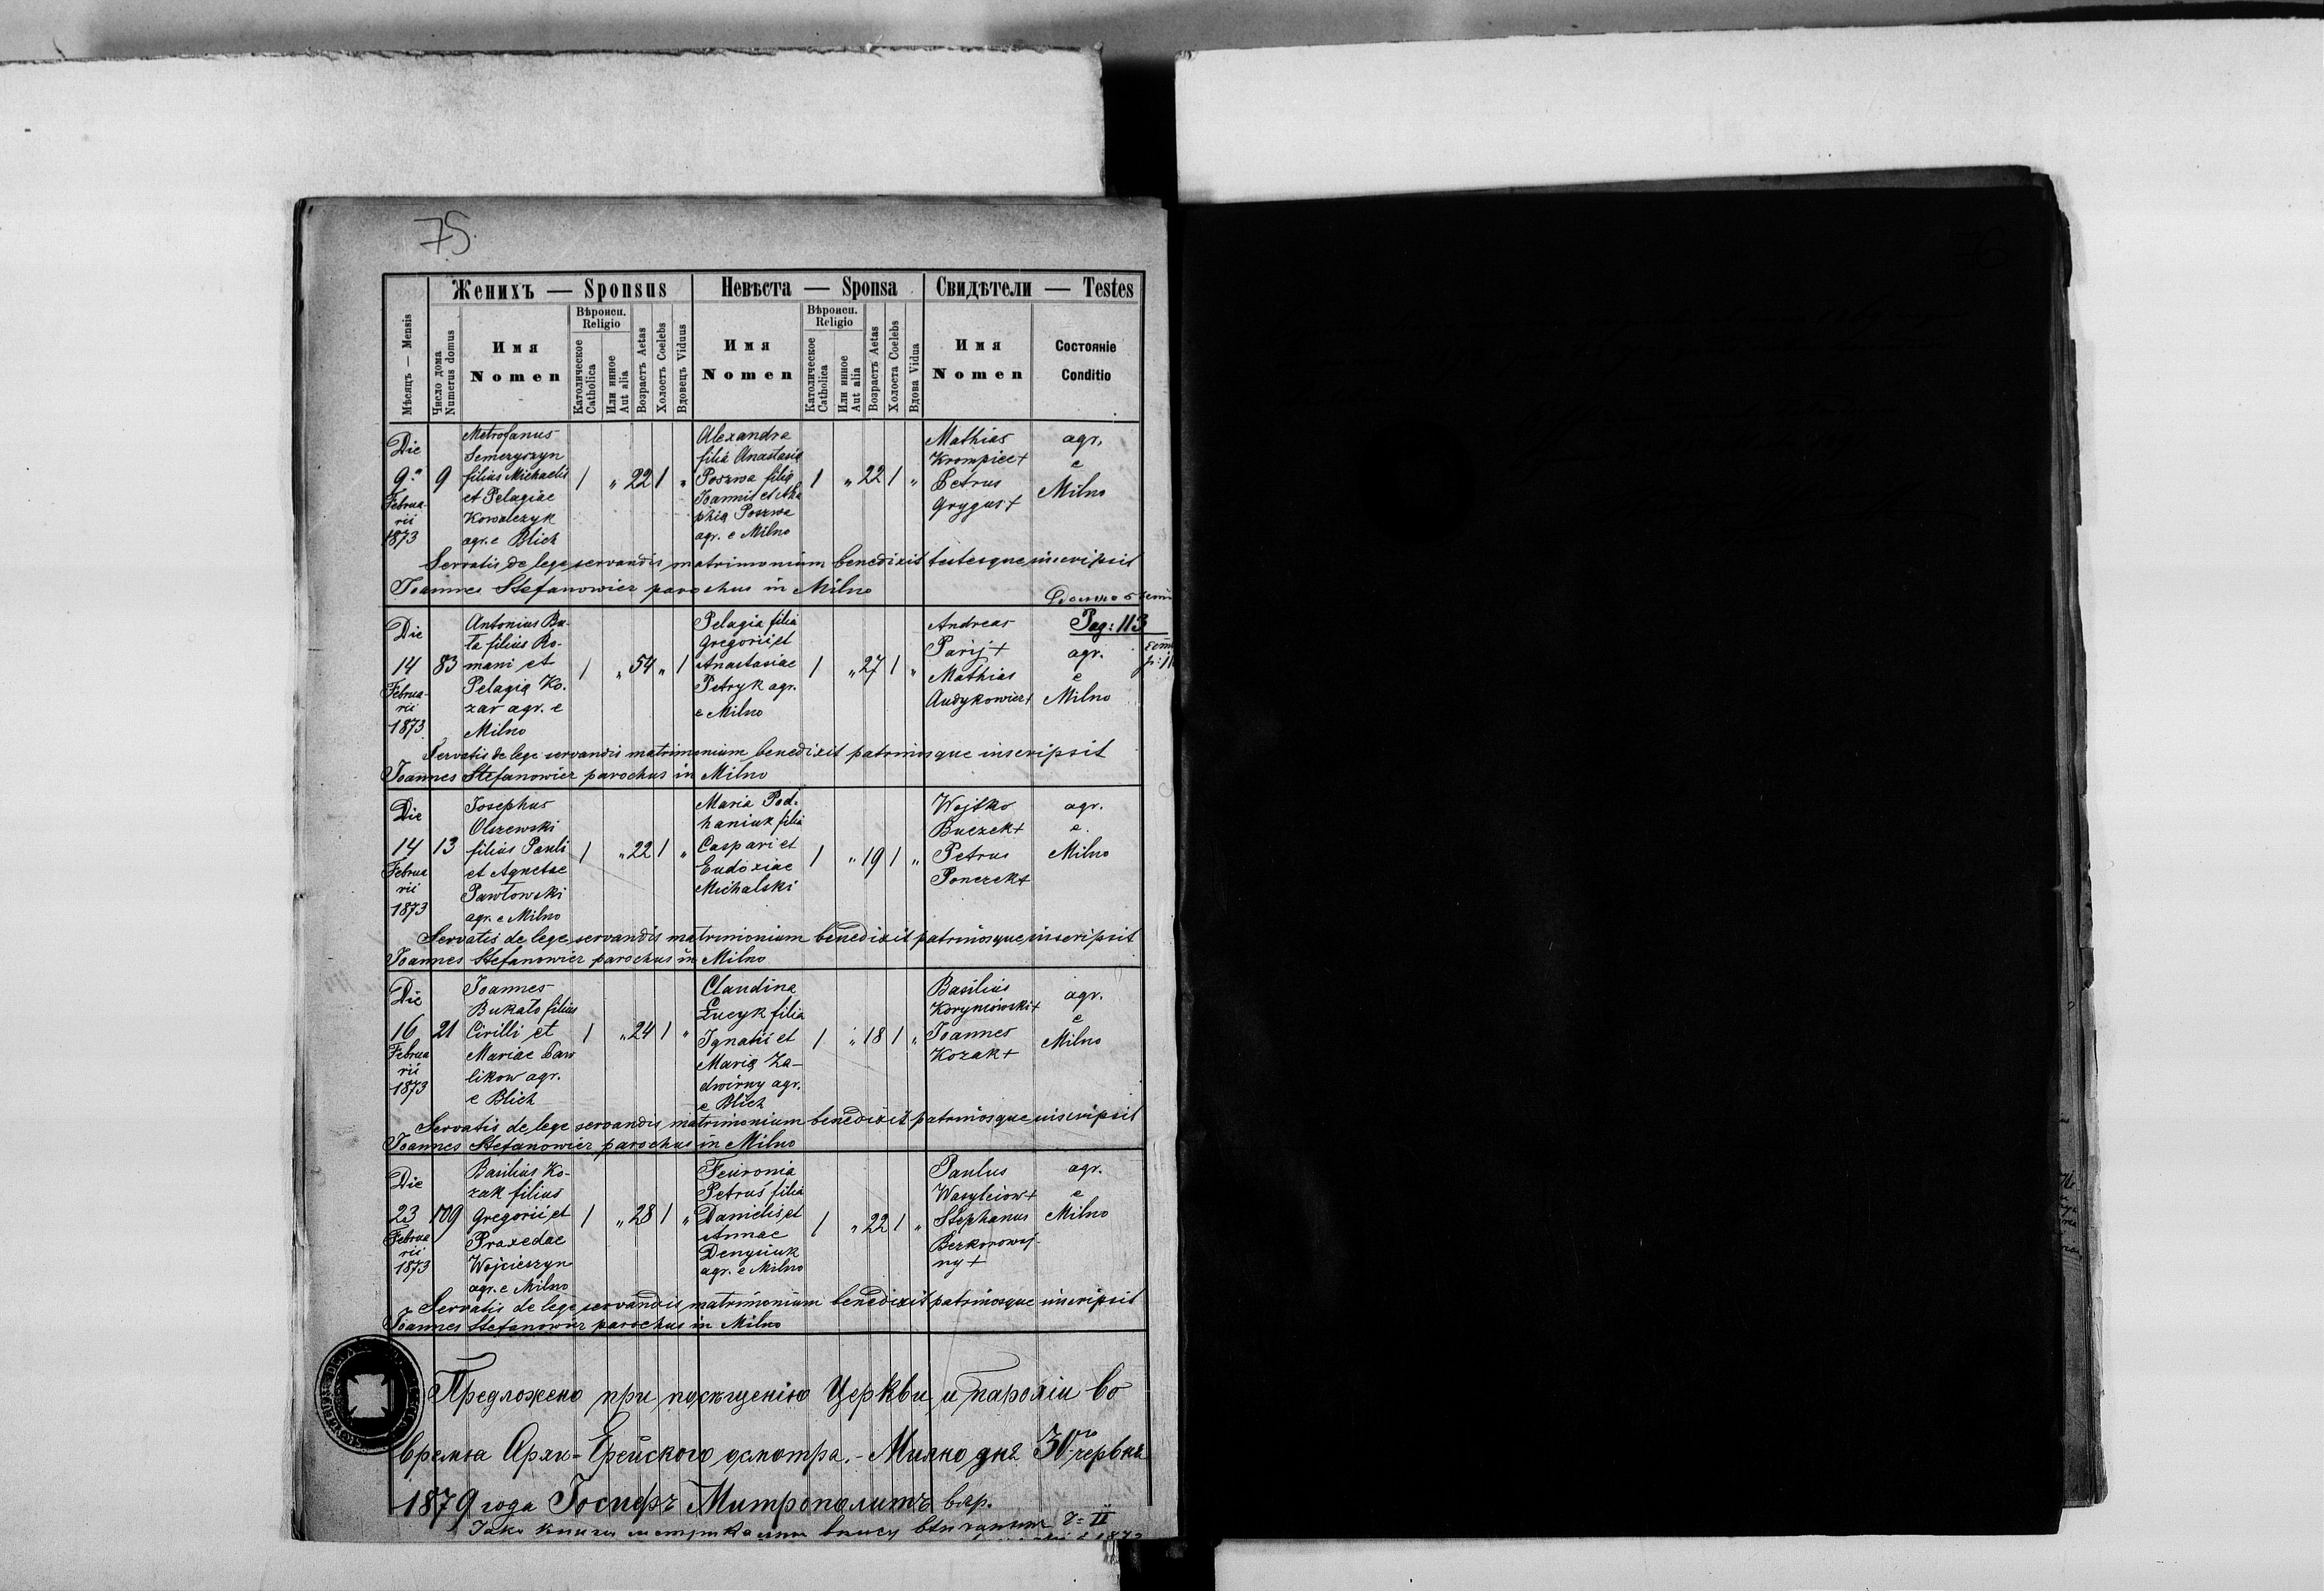 75.
Женихъ — Sponsus
Невѣста — Sponsa
Свидѣтели — Testes
Мѣсяцъ — Mensis
Число дома
Numerus domus
Имя
Nomen
Вѣроисп.
Religio
Католическое
Catholica
Или инное
Aut alia
Возрастъ Aetas
Холостъ Coelebs
Вдовецъ Viduus
Имя
Nomen
Вѣроисп.
Religio
Католическое
Catholica
Или инное
Aut alia
Возрастъ Aetas
Холоста Coelebs
Вдова Vidua
Имя
Nomen
Состояніе
Conditio
Die
9a
Februa-
rii
1873
9
Metrofanus
Semeryszyn
filius Michaelis
et Pelagiae
Kowalczyk
agr. e Blich
1 " 22 1 "
Alexandra
filia Anastasia
Poszwa filia
Joannis et Aha
phia Poszwa
agr. e Milno
1 " 22 1 "
Mathias
Krompiec+
Petrus
Grygus+
agr.
e
Milno
Servatis de lege servandis matrimonium benedixit testesque inscripsit
Joannes Stefanowicz parochus in Milno
Die
14
Februa-
rii
1873
83
Antonius Bu-
ta filius Ro-
mani et
Pelagia Ko-
zar agr. e
Milno
1 " 54 " 1
Pelagia filia
Gregorii et
Anastasiae
Petryk agr.
e Milno
1 " 27 1 "
Andreas
Parij+
Mathias
Audykowicz+
Pag: 113
agr.
e
Milno
Servatis de lege servandis matrimonium benedixit patrinosque inscripsit
Joannes Stefanowicz parochus in Milno
Die
14
Februa
rii
1873
13
Josephus
Olszewski
filius Pauli
et Agnetae
Pawłowski
agr. e Milno
1 " 22 1 "
Maria Pod-
haniuk filia
Caspari et
Eudoxiae
Michalski
1 " 19 1 "
Wojtko
Buczek+
Petrus
Ponczek+
agr.
e.
Milno
Servatis de lege servandis matrimonium benedixit patrinosque inscripsit
Joannes Stefanowicz parochus in Milno
Die
16
Februa
rii
1873
21
Joannes
Bukało filius
Cirilli et
Mariae Paw
likow agr.
e Blich
1 " 24 1 "
Claudina
Łucyk filia
Ignatii et
Maria Za-
dwirny agr.
e Blich
1 " 18 1 "
Basilius
Koryniowski+
Joannes
Kozak+
agr.
e
Milno
Servatis de lege servandis matrimonium benedixit patrinosque inscripsit
Joannes Stefanowicz parochus in Milno
Die
23
Februa
rii
1873
109
Basilius Ko-
zak filius
Gregorii et
Praxedae
Wojcieszyn
agr. e Milno
1 " 28 1 "
Feuronia
Petruś filia
Danielis et
Annae
Denysiuk
agr. e Milno
1 " 22 1 "
Paulus
Wasylciow+
Stephanus
Bezkorowaj-
ny+
agr.
e
Milno
Servatis de lege servandis matrimonium benedixit patrinosque inscripsit
Joannes Stefanowicz parochus in Milno
Предложено при посѣщенію Церкви и парохіи во
время Архи-Ерейского осмотра. - Милно дня 30го червня
1879 года Іосифъ Митрополитъ вл.р.